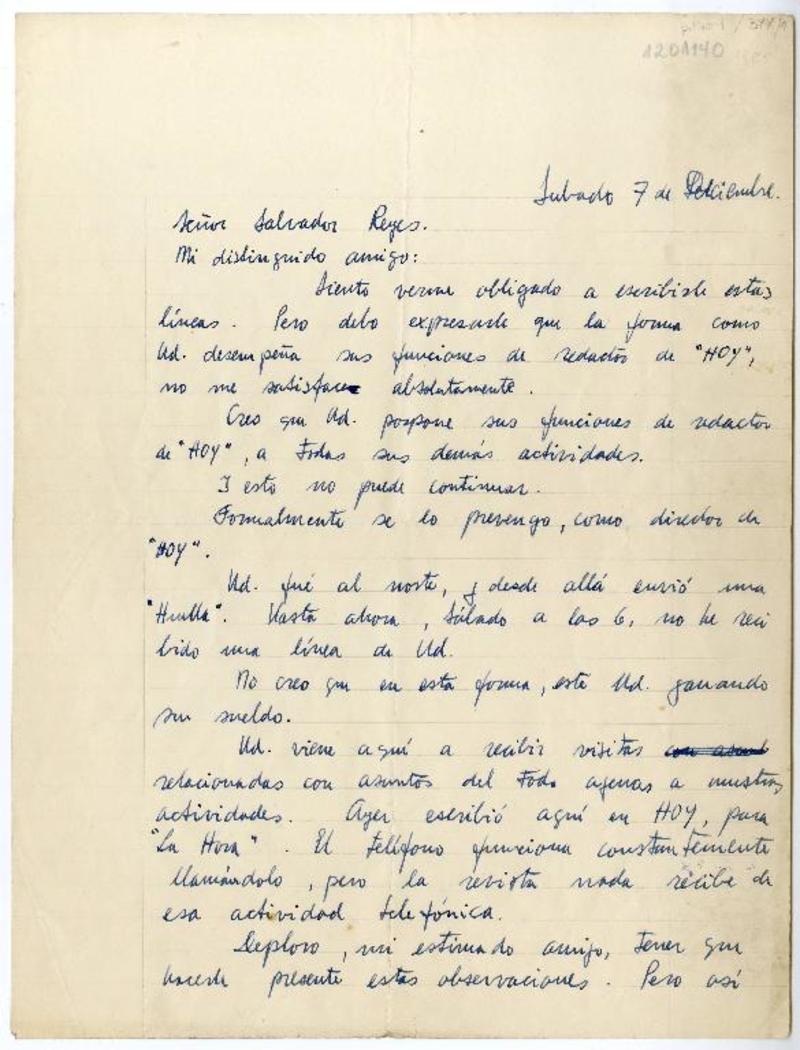 1201140
Sabado 7 de Diciembre.
Señor Salvador Reyes.
Mi distinguido amigo:
Siento verme obligado a escribirle estas
líneas. Pero debo expresarle que la forma como
Ud. desempeña sus funciones de redactor de "HOY",
no me satisface absolutamente.
Creo que Ud. pospone sus funciones de redactor
de "HOY", a todas sus demás actividades.
I esto no puede continuar.
Formalmente se lo prevengo, como director de
"HOY".
Ud. fué al norte, y desde allá envió una
"Huella". Hasta ahora, Sábado a las 6, no he reci
bido una línea de Ud.
No creo que en esta forma, esté Ud. ganando
su sueldo.
Ud. viene aquí a recibir visitas
relacionadas con asuntos del todo agenas a nuestras
actividades. Ayer escribió aquí en HOY, para
"La Hora". El teléfono funciona constantemente
llamándolo, pero la revista nada recibe de
esa actividad telefónica.
Deploro, mi estimado amigo, tener que
hacerle presente estas observaciones. Pero así